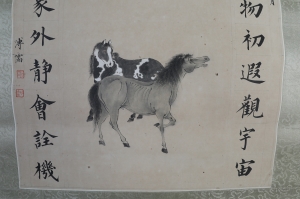 物初遐觀宇宙
象外靜會詮機
溥